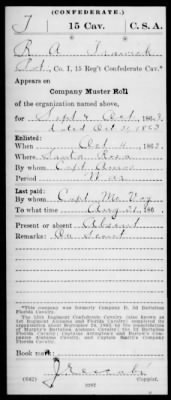 (CONFEDERATE.)
T 15 Cav. C. S. A.
R A Trawick
Pvt, Co. I, 15 Reg't Confederate Cav.*
Appears on
Company Muster Roll
of the organization named above,
for Sept & Oct, 1863.
dated Oct 31 1863
Enlisted:
When Oct 4, 1863.
Where Santa Rosa
By whom Capt
Period War
Last paid:
By whom Capt McVoy
To what time Aug 31, 186 .
Present or absent Absent
Remarks: On Scout
*This company was formerly Company B, 3d Battalion
Florida Cavalry.
The 15th Regiment Confederate Cavalry (also known as
1st Regiment Alabama and Florida Cavalry) completed its
organization about September 24, 1863, by the consolidation
of Murphy's Battalion Alabama Cavalry; the 3d Battalion
Florida Cavalry; Captains Arrington's and Barlow's Companies
Alabama Cavalry, and Captain Smith's Company
Florida Cavalry.
Book mark:
(642)
Copyist.